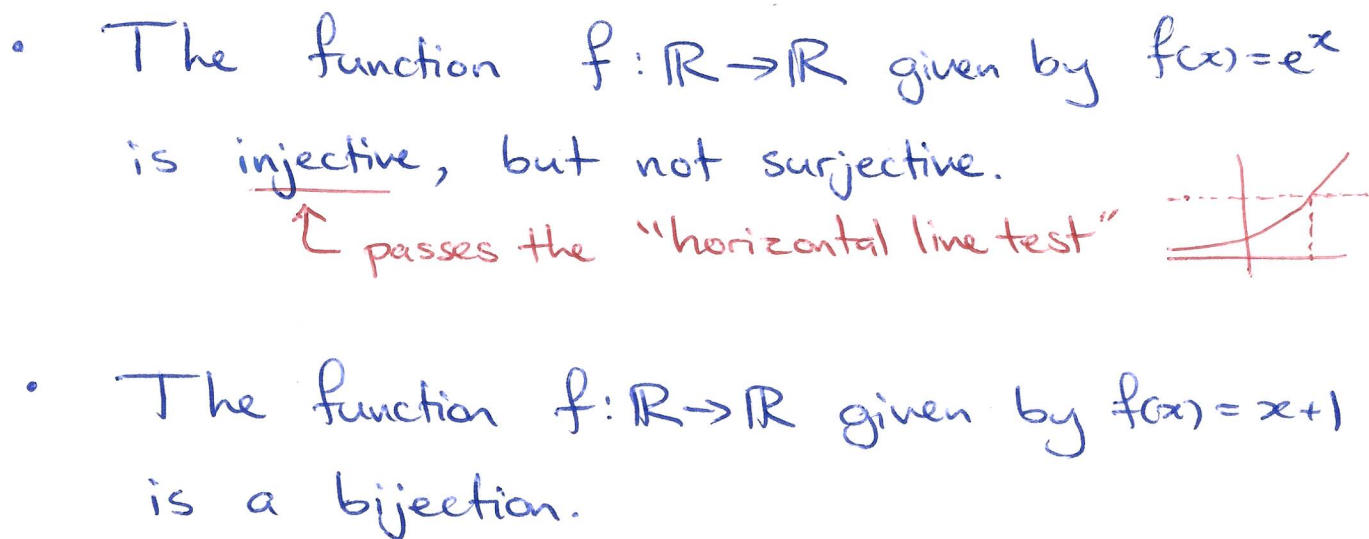 • The function f: ℝ→ℝ given by f(x)=eˣ
is injective, but not surjective.
↑ passes the "horizontal line test"
• The function f: ℝ→ℝ given by f(x)=x+1
is a bijection.